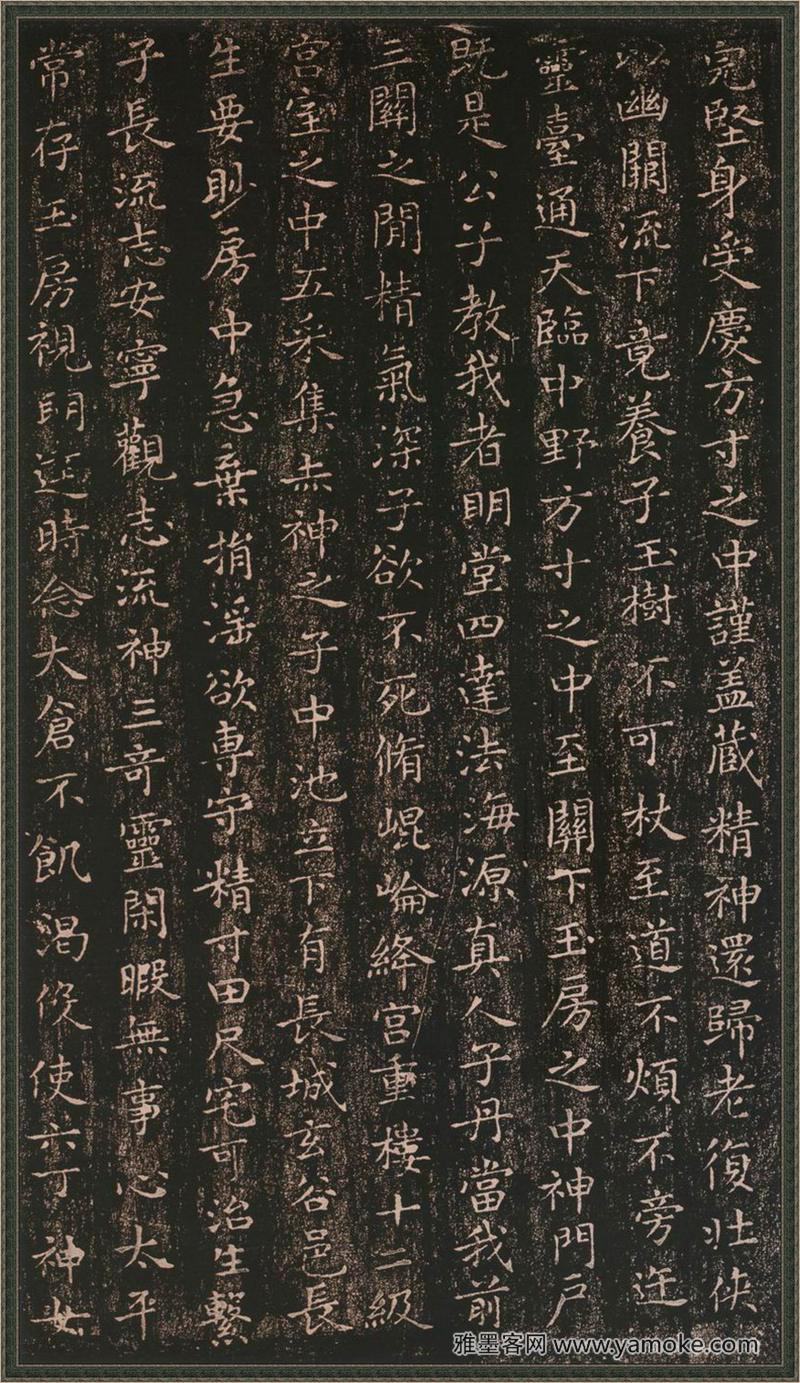 完堅身受慶方寸之中謹盖藏精神還歸老復壯俠
以幽闕流下竟養子玉樹不可杖至道不煩不旁迕
靈臺通天臨中野方寸之中至關下玉房之中神門戶
既是公子教我者明堂四達法海源真人子丹當我前
三關之間精氣深子欲不死脩崐崘絳宮重樓十二級
宮室之中五采集赤神之子中池立下有長城玄谷邑長
生要眇房中急棄捐淫欲專守精寸田尺宅可治生繫
子長流志安寧觀志流神三奇靈閑暇無事心太平
常存玉房視明達時念大倉不飢渴役使六丁神女
雅墨客网 www.yamoke.com